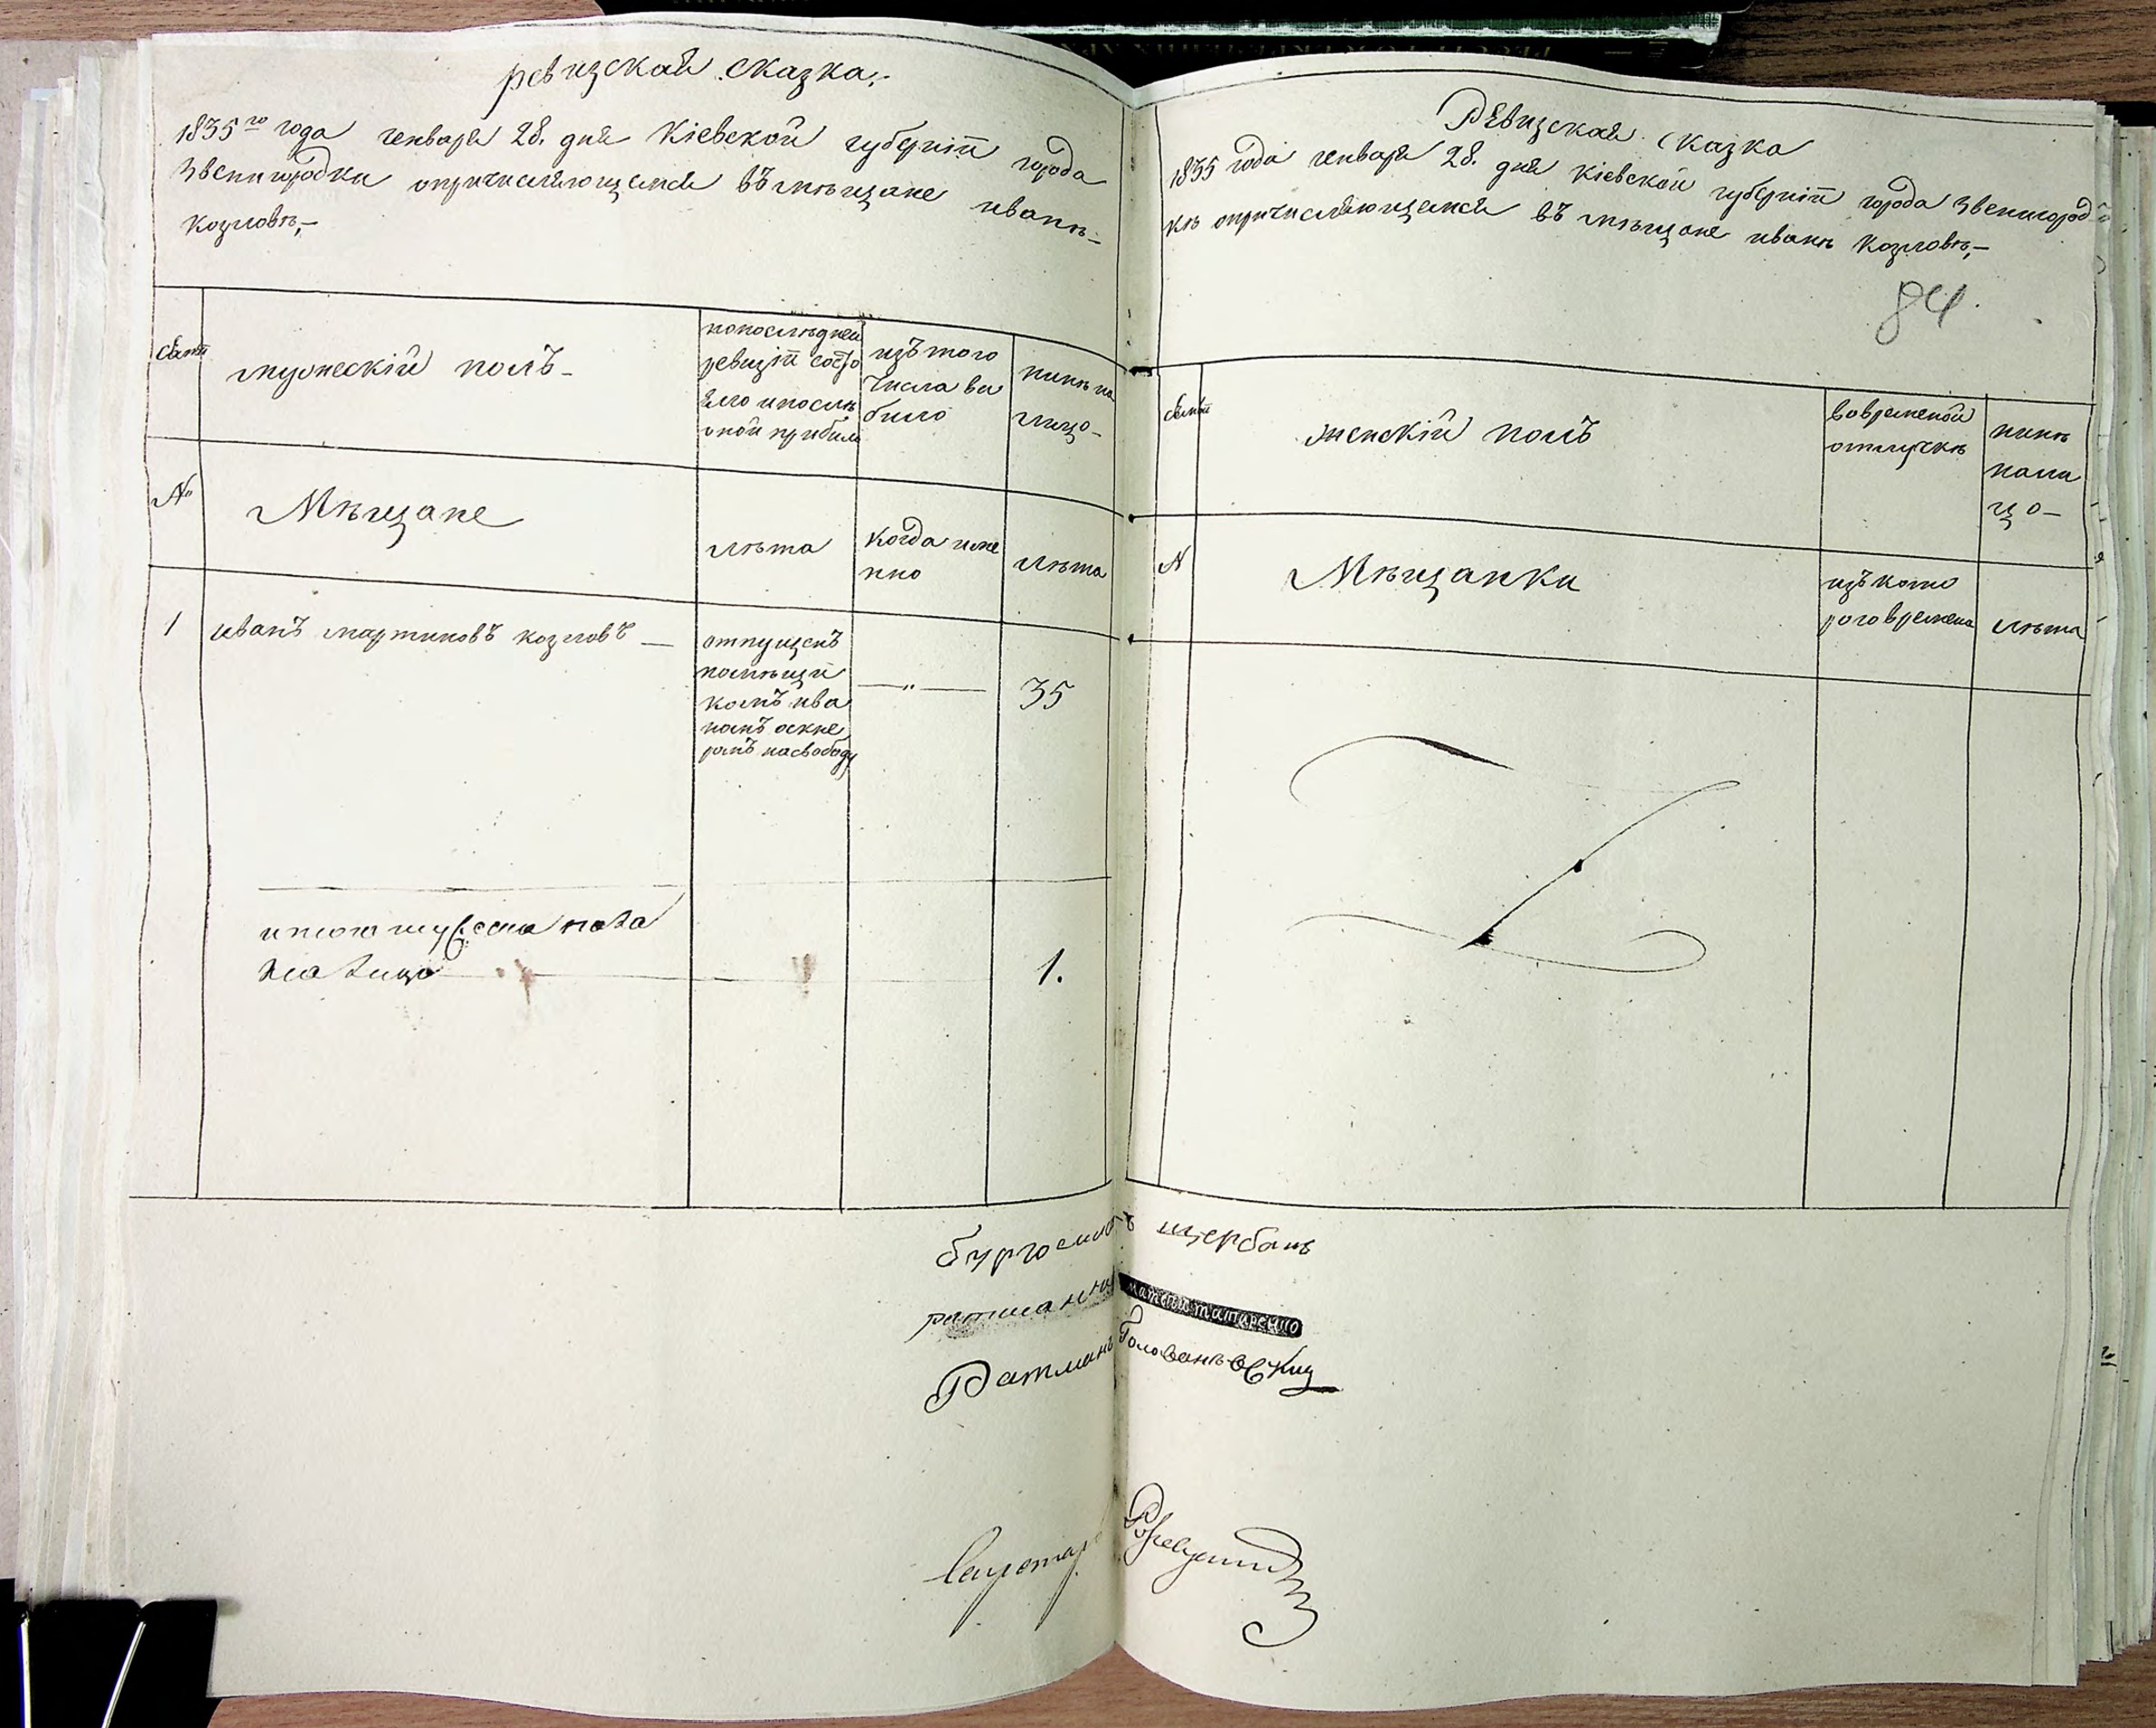 ревизская сказка.
1835го года генваря 28. дня Кіевской губерніи города
Звенигородки опричисляющемся въ мѣщане иванѣ
козловѣ,-
Семьи
мужескій полъ-
попослѣдней
ревизіи состо
яло ипослѣ
оной прибыло
изътого
числа вы
было
нынѣ на
лицо-
№
Мѣщане
лѣта
когда име
нно
лѣта
1
иванъ мартиновъ козловъ
отпущенъ
помѣщи
комъ ива
номъ
насвободу
—"—
35
итого мужеска пола
на лицо
1.
Ревизская Сказка
1835 года генваря 28. дня Кіевской губерніи города Звенигород
кѣ опричисляющемся въ мѣщане иванѣ Козловѣ,-
84.
Семьи
женскій полъ
вовременой
отлучкѣ
нынѣ
нали
цо-
N
Мѣщанки
изъкото
роговремени
лѣта
бургомистъ щербань
ратманъ матвѣй татаренко
Ратманъ Голованьовскиц